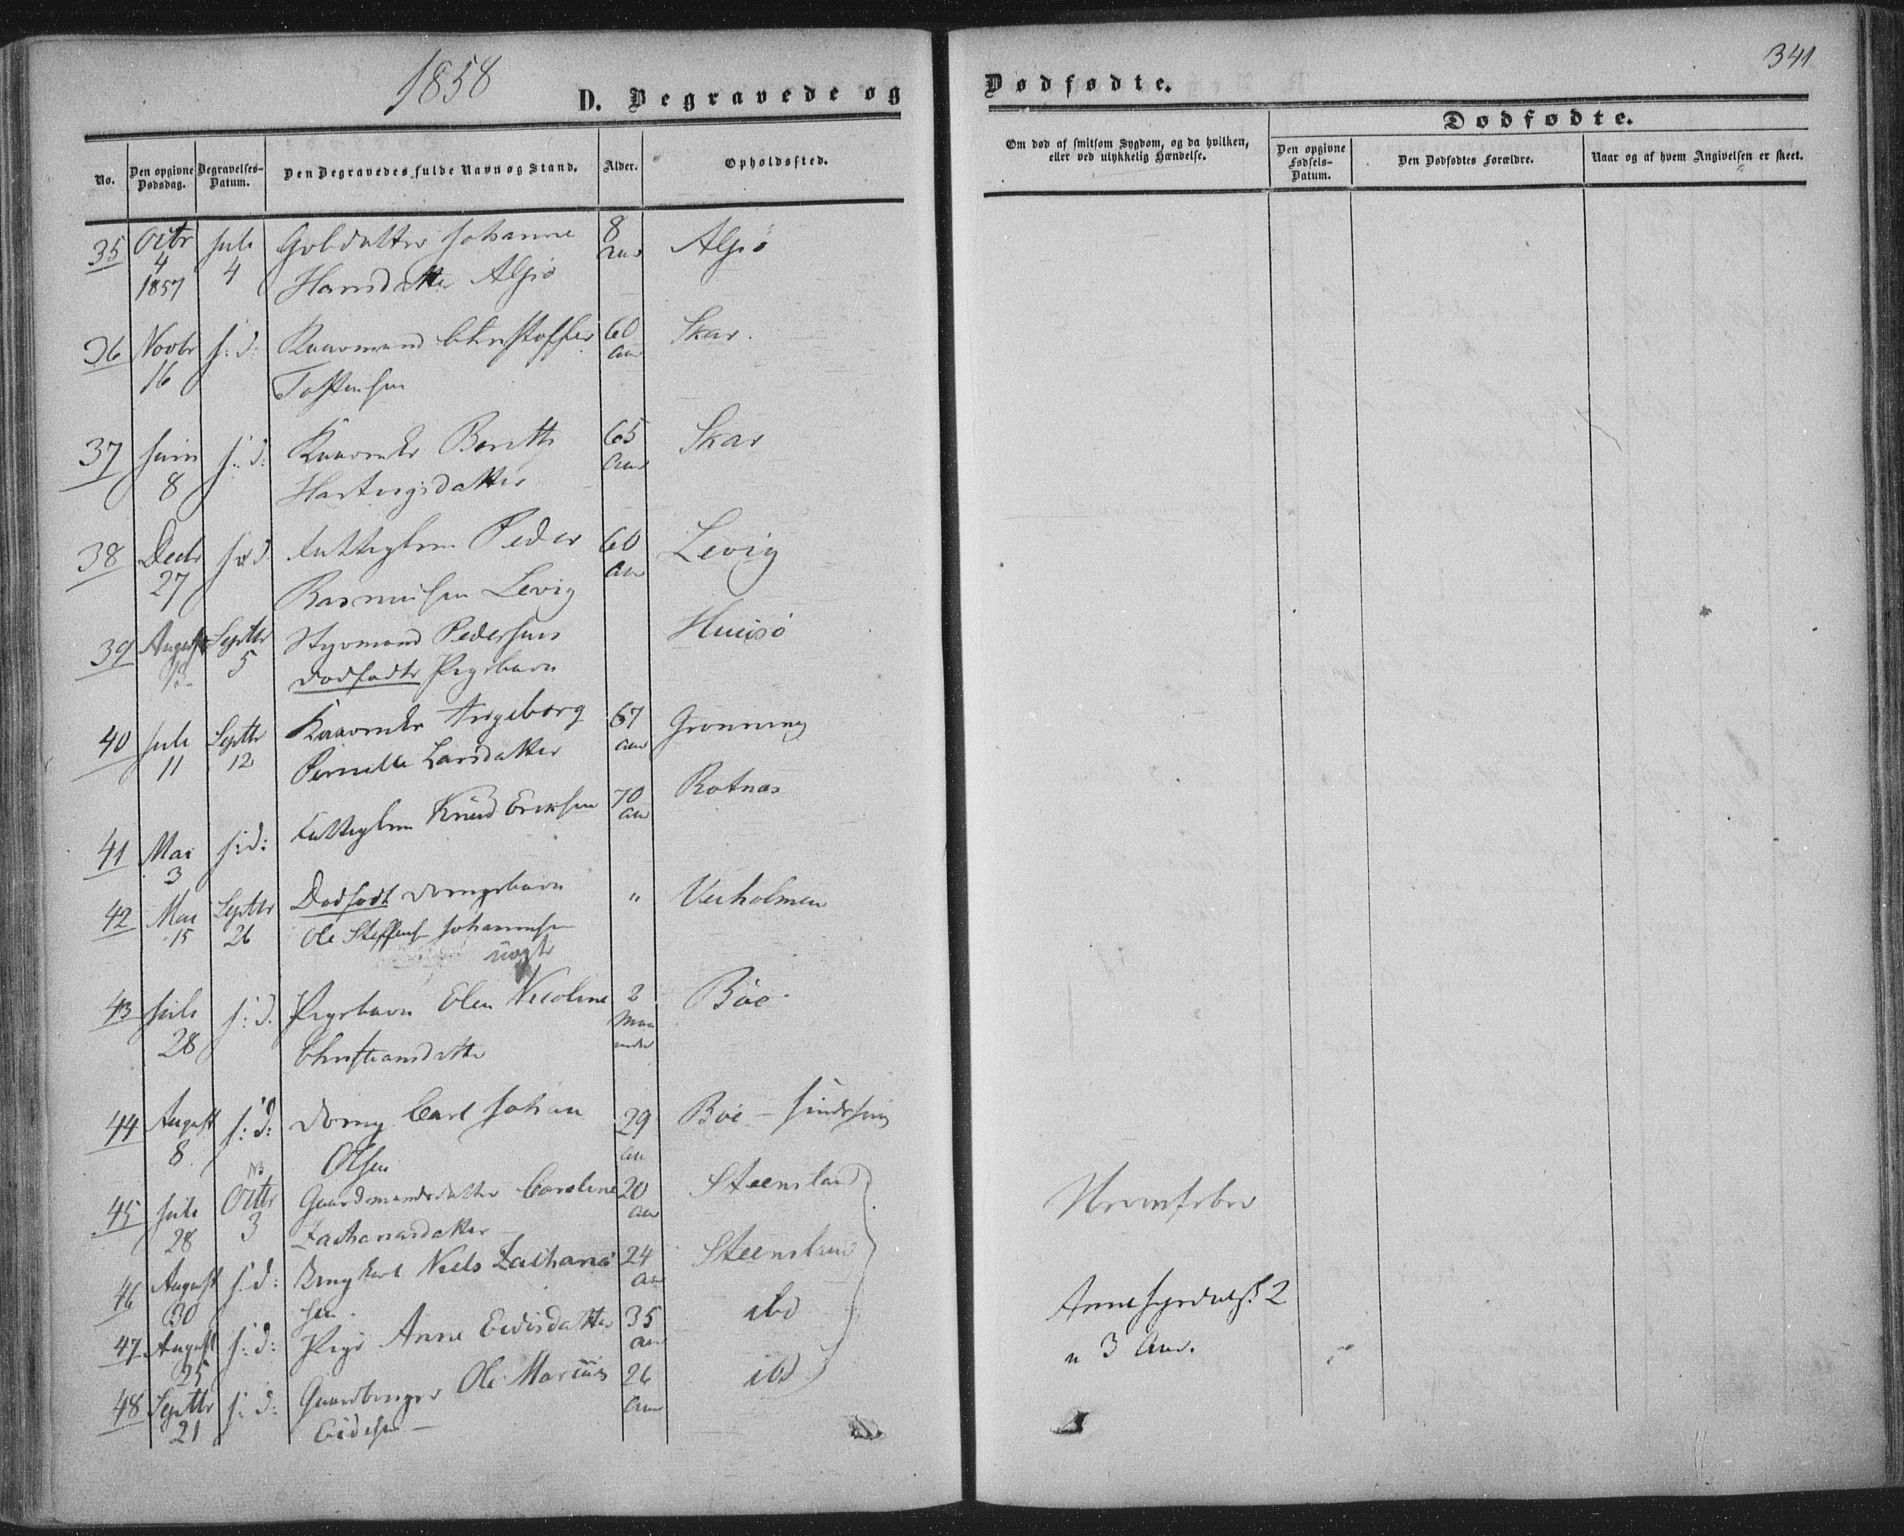 1858
D. Begravede og
No.
Den opgivne Dødsdag.
Begravelses-Datum.
Den Begravedes fulde Navn og Stand.
Alder.
Opholdssted.
35 Octbr Juli Johanne 8 Alsiø
4 4 Hansdatter Alsiø Aar
1857
36 Novbr s: d: Kaarmand Christoffer 60 Skar.
16 Tostensen Aar
37 Juni s: d: Kaarenke Bereth 65 Skar
8 Hartvigsdatter Aar
38 Decbr s: d: Peder 60 Levig
27 Rasmussen Levig Aar
39 August Septbr Styrmand Pedersens Huusø
13 5 dødfødte Pigebarn
40 Juli Septbr Kaarenke Ingeborg 67 Grønning
11 12 Pernille Larsdatter Aar
41 Mai s: d: Knud Eriksen 70 Rotnæs
3 Aar
42 Mai Septbr Dødfødt Drengebarn " Veiholmen
15 26 Ole Steffens Johannesen
uægte
43 Juli s: d. Pigebarn Elen Nicoline 2 Bøe
28 Christiansdatter Maaneder
44 August s: d: Dreng Carl Johan 29 Bøe
8 Olsen
45 Juli Octbr Gaardmandsdatter Caroline 20 Steensland
28 3 Zachariasdatter Aar
46 August s: d: Niels Zacharias 24 Steensland
30 sen Aar
47 August s: d: Pige Anne Eidisdatter 35 ibd
25 Aar
48 Septbr s: d: Ole Marius 26 ibd
21 Eidisen Aar
341
Dødfødte.
Om død af smitsom Sygdom, og da hvilken, eller ved ulykkelig Hændelse.
Dødfødte.
Den opgivne Fødsels-Datum.
Den Dødfødtes Forældre.
Naar og af hvem Angivelsen er skeet.
Nervefeber
3 Aar.